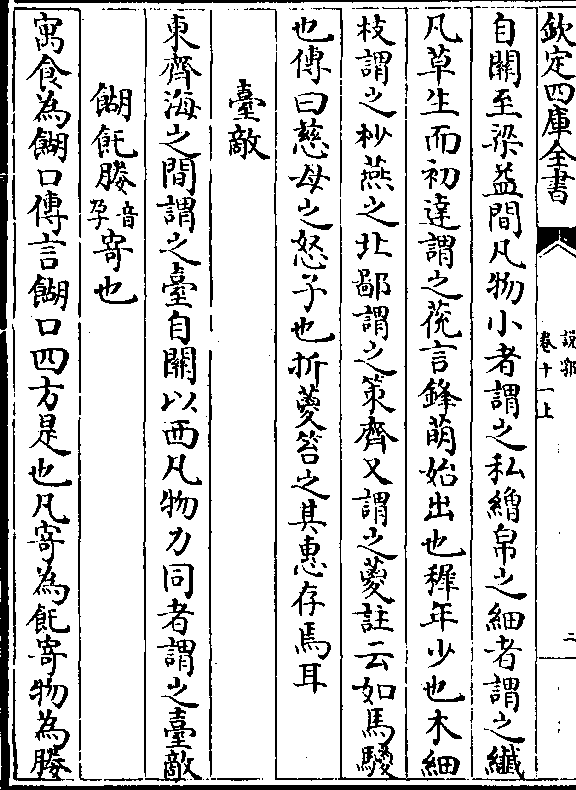 欽定四庫全書
說郛
卷十一上
二
自關至梁益間凡物小者謂之私繒帛之細者謂之纖
凡草生而初達謂之䓲言鋒萌始出也稺年少也木細
枝謂之杪燕之北鄙謂之策齊又謂之葼註云如馬騣
也傳曰慈母之怒子也折葼笞之其惠存焉耳
臺敵
東齊海之間謂之臺自關以西凡物力同者謂之臺敵
餬飥媵音孕寄也
寓食為餬口傳言餬口四方是也凡寄為飥寄物為媵